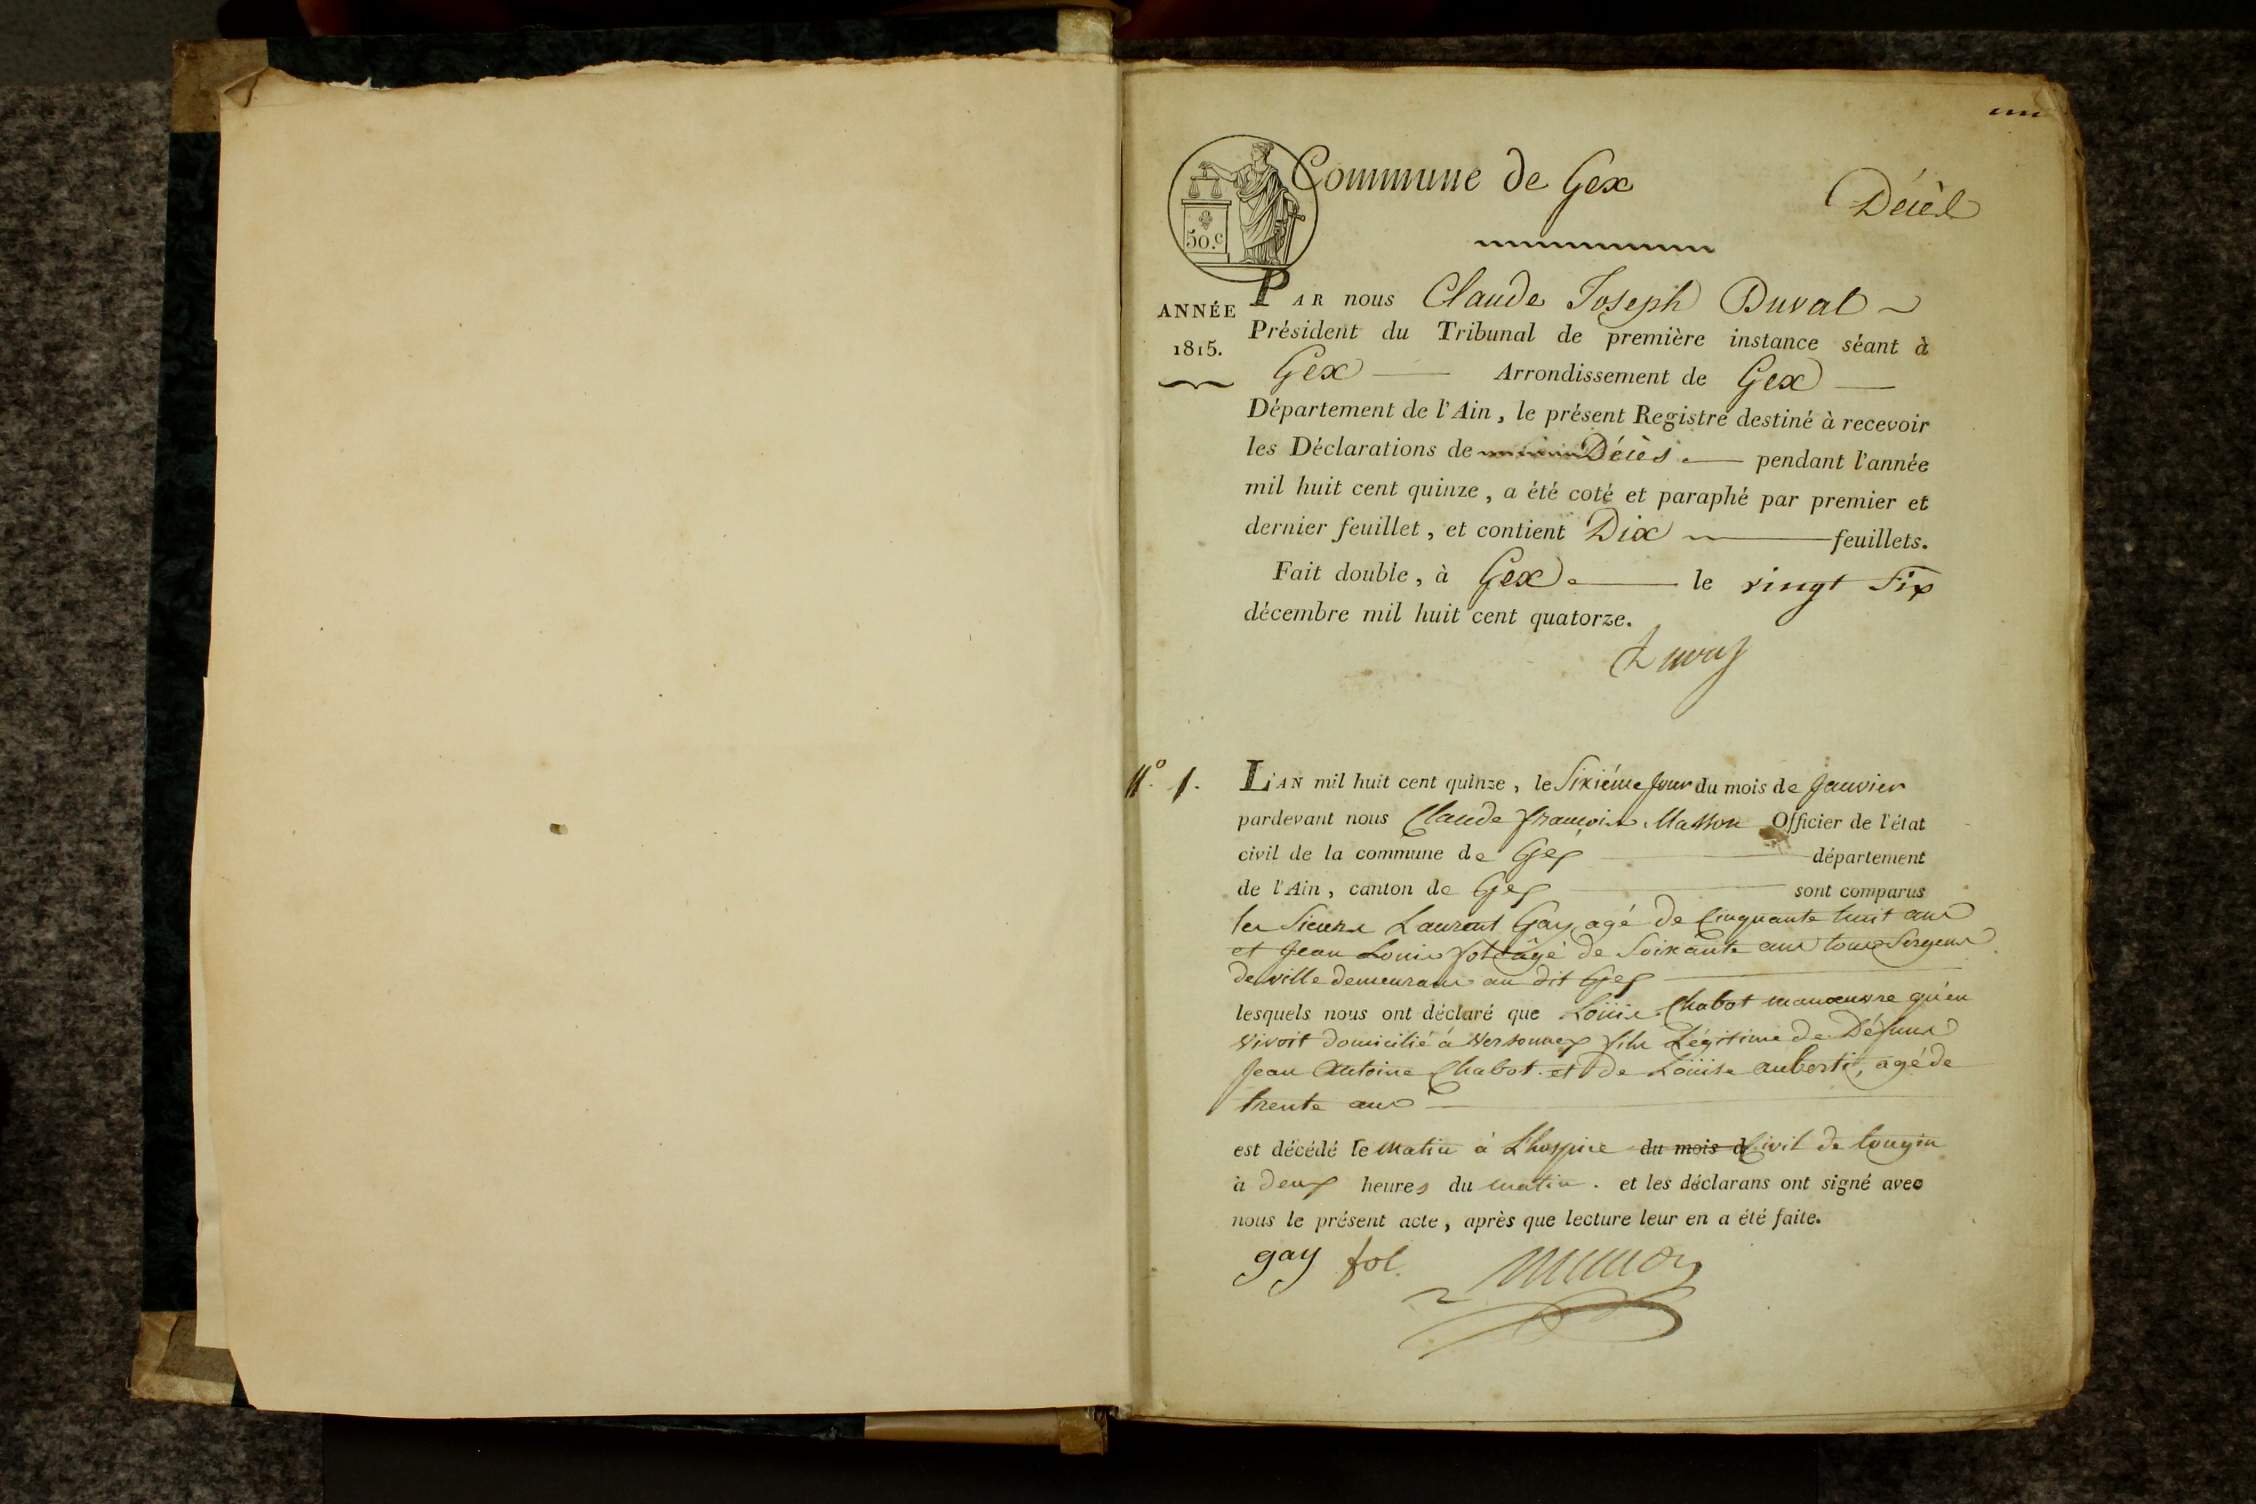 Commune de Gex
Décès
50.c
ANNÉE
1815.
PAR nous Claude Joseph Duval
Président du Tribunal de première instance séant à
Gex Arrondissement de Gex
Département de l'Ain, le présent Registre destiné à recevoir
les Déclarations de Décès pendant l'année
mil huit cent quinze, a été coté et paraphé par premier et
dernier feuillet, et contient Dix feuillets.
Fait double, à Gex le vingt Six
décembre mil huit cent quatorze.
Duval
N.° 1.
L'AN mil huit cent quinze, le Sixiéme Jour du mois de Janvier
pardevant nous Claude françois Masson Officier de l'état
civil de la commune de Gex département
de l'Ain, canton de Gex sont comparus
les Sieurs Laurent Gay agé de Cinquante huit ans
et Jean Louis fol âgé de Soixante ans tous Sergens
de ville demeurans au dit Gex
lesquels nous ont déclaré que Louis Chabot manœuvre qu'en
vivoit domicilié à Versonnex fils Légitime de Défunt
Jean Antoine Chabot et de Louise auberti, agé de
trente ans
est décédé le matin à L'hospice du mois d Civil de tougin
à deux heures du matin. et les déclarans ont signé avec
nous le présent acte, après que lecture leur en a été faite.
gay fol. Masson